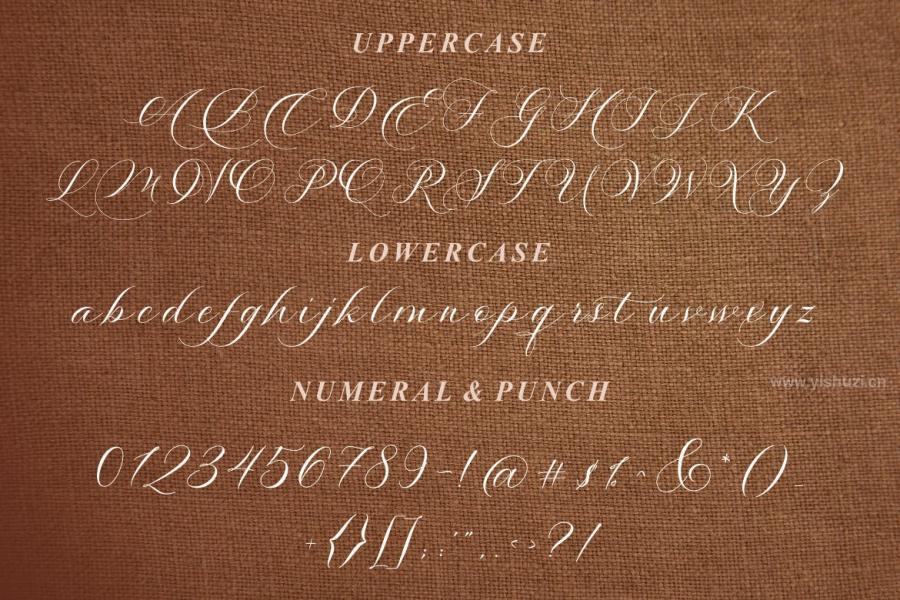 UPPERCASE
A B C D E F G H I J K
L M N O P Q R S T U V W X Y Z
LOWERCASE
a b c d e f g h i j k l m n o p q r s t u v w x y z
www.yishuzi.cn
NUMERAL & PUNCH
0 1 2 3 4 5 6 7 8 9 - ! @ # $ % ^ & * ( ) _
+ { } [ ] ; : ' " , . < > ? /